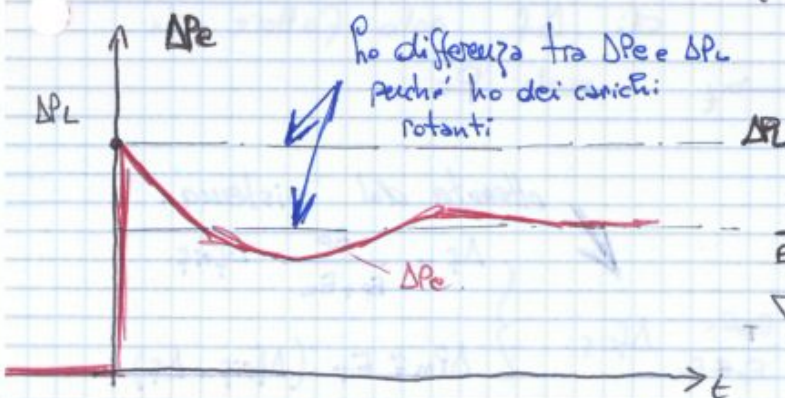 ΔPe
ho differenza tra ΔPe e ΔPL
perché ho dei carichi
rotanti
ΔPL
ΔPL
ΔPe
t